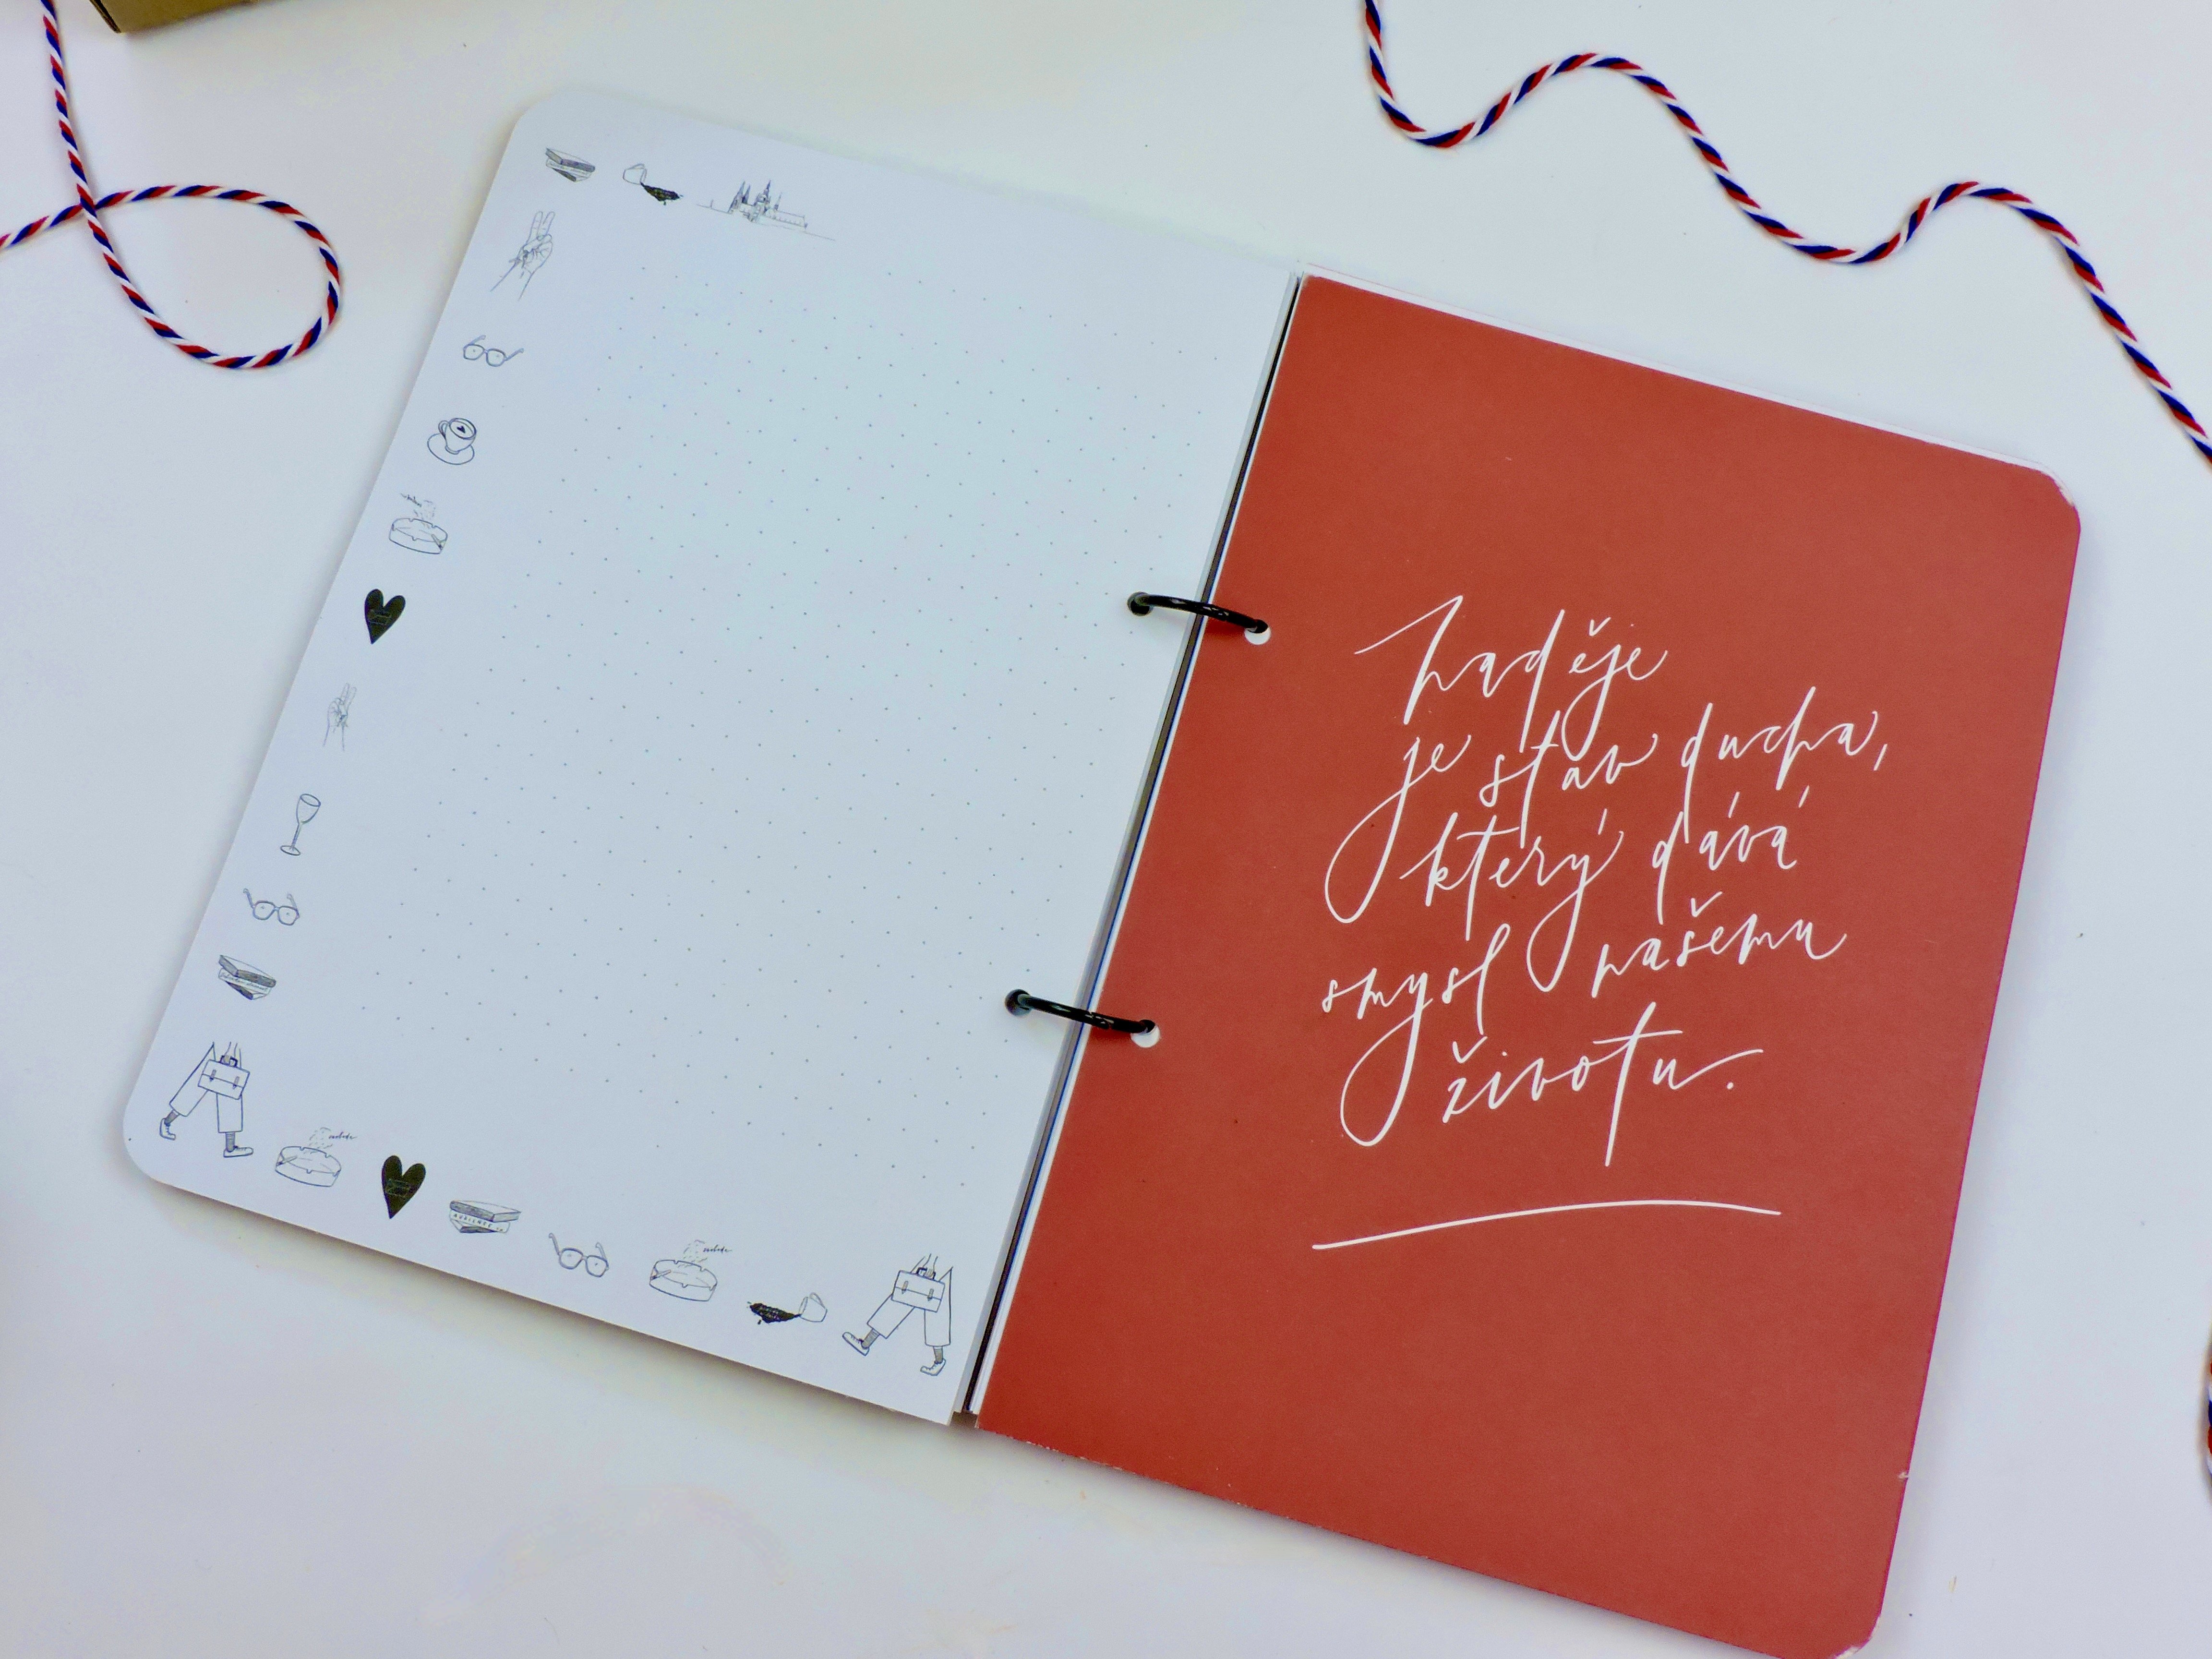 naděje
je stav ducha,
který dává
smysl našemu
životu.